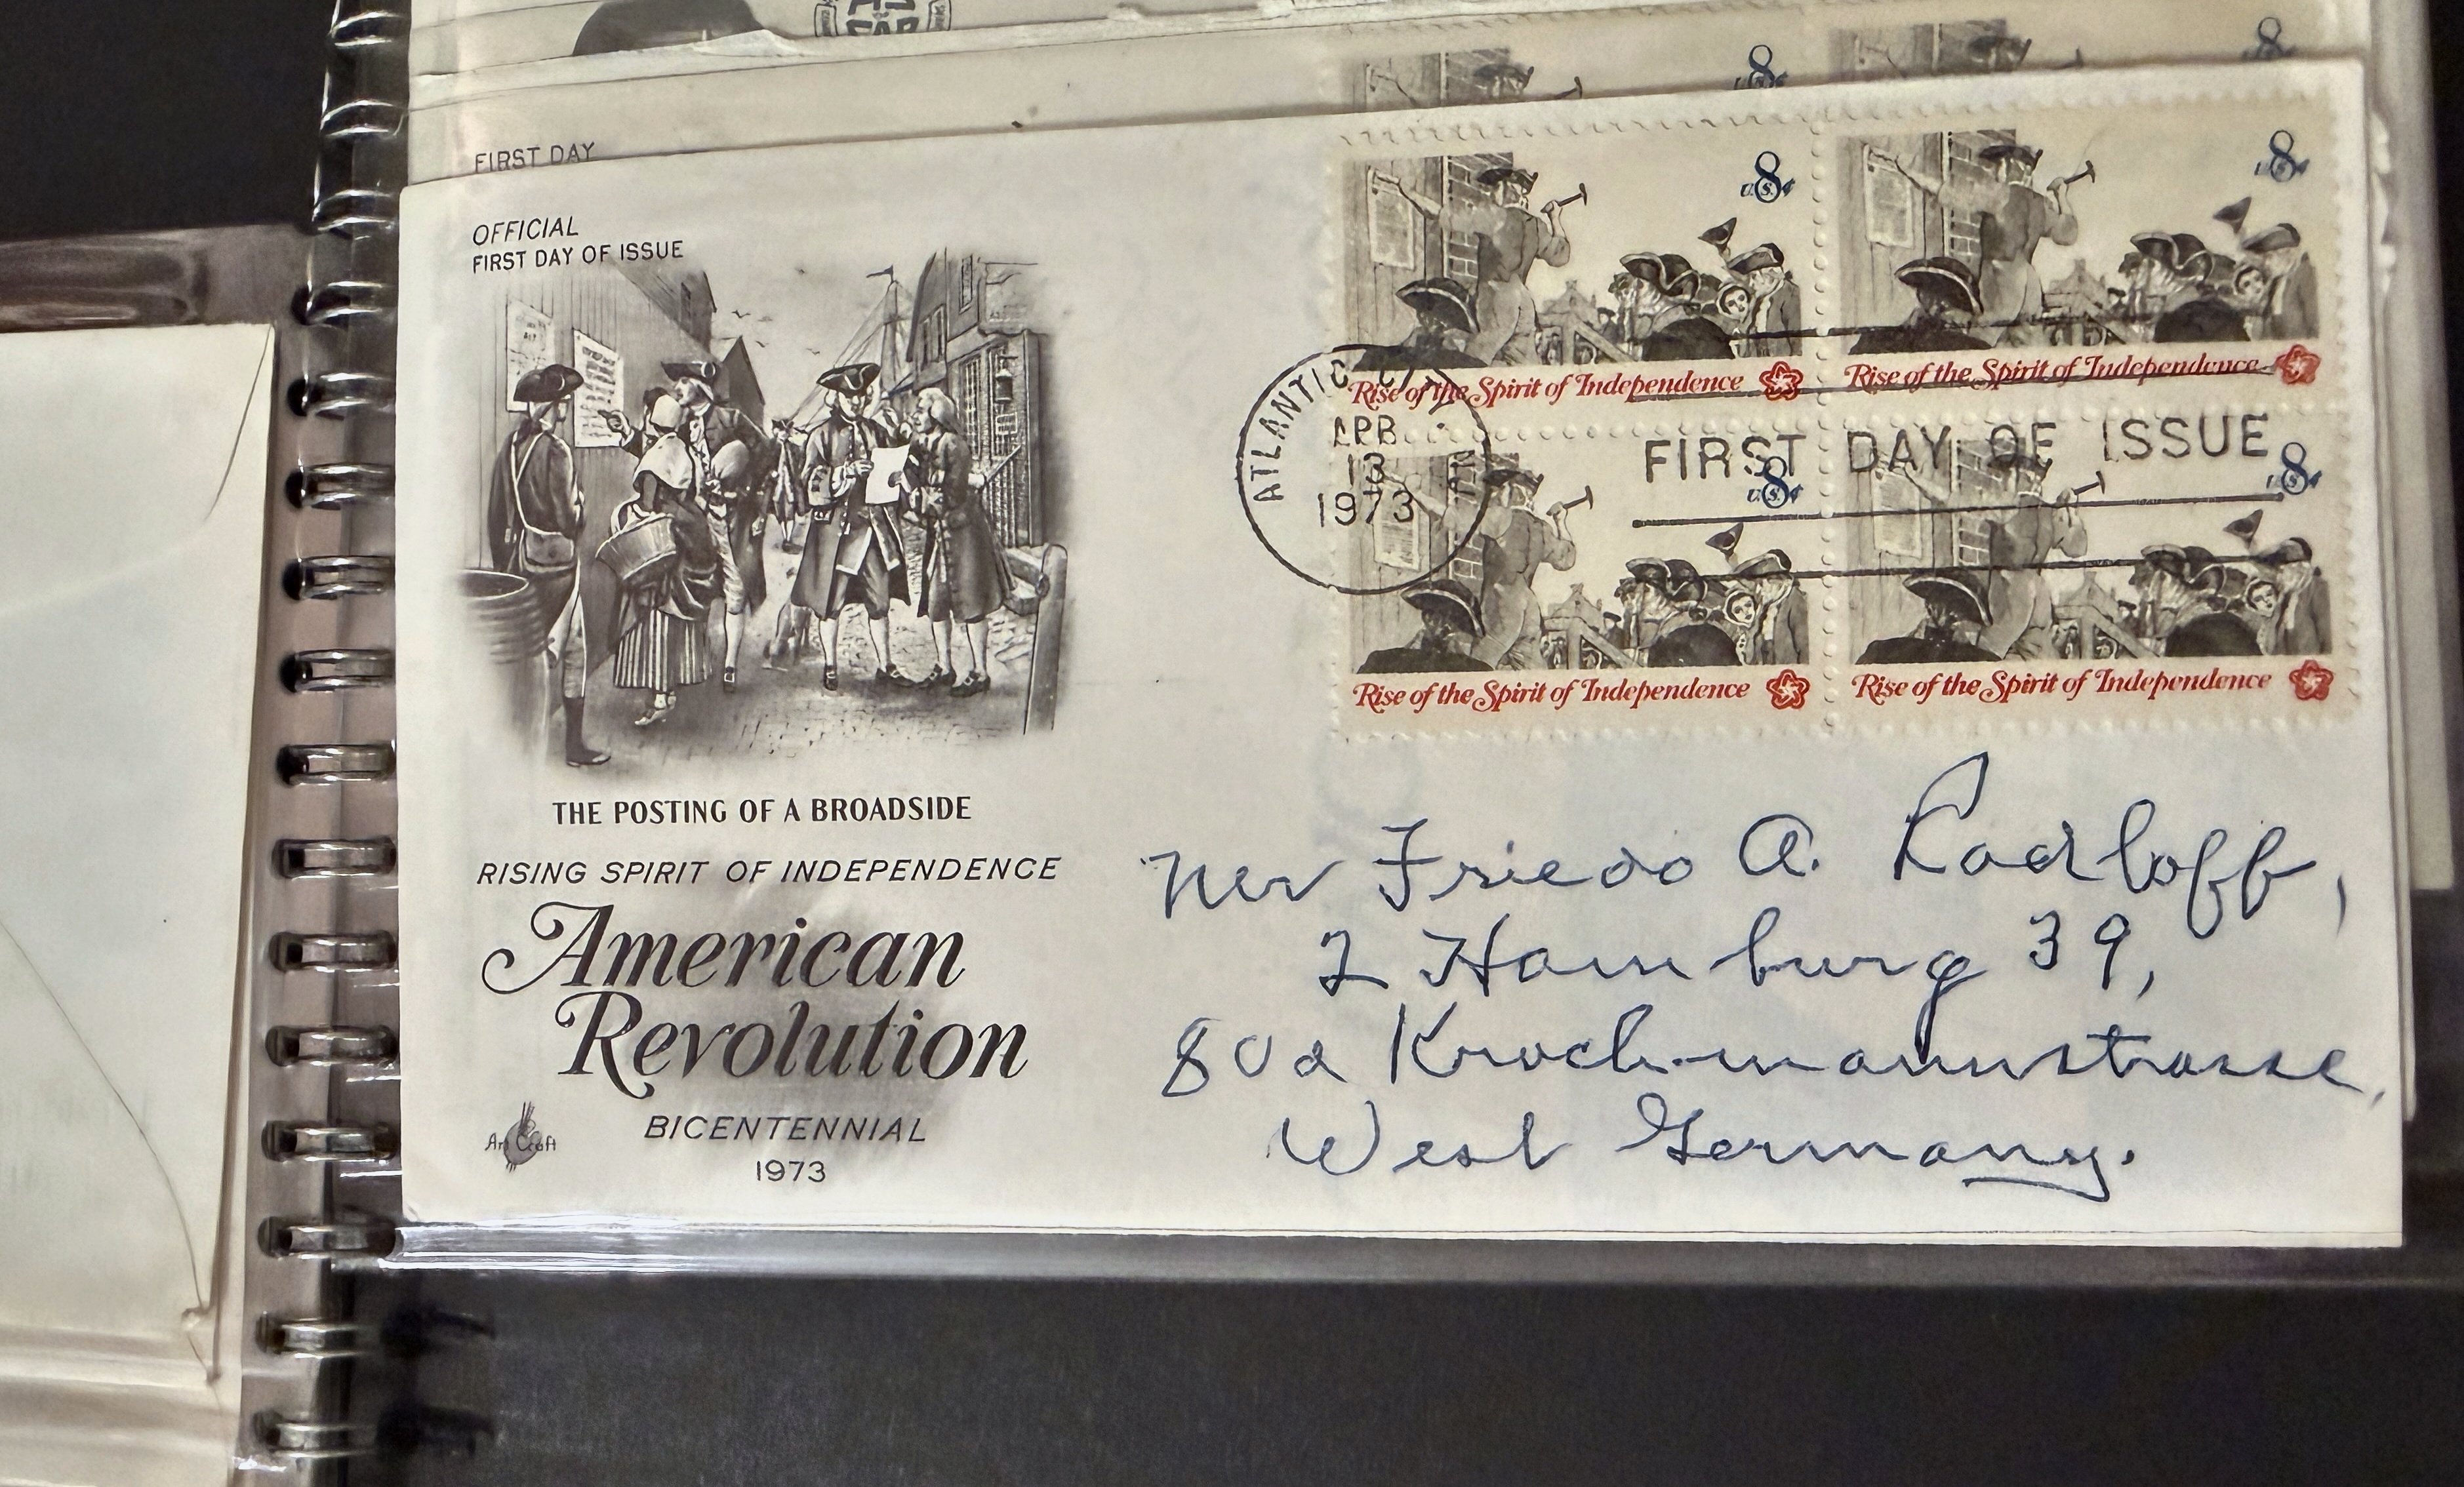 FIRST DAY
OFFICIAL
FIRST DAY OF ISSUE
THE POSTING OF A BROADSIDE
RISING SPIRIT OF INDEPENDENCE
American
Revolution
BICENTENNIAL
1973
Art Craft
8
8
U.S. 8¢
U.S. 8¢
Rise of the Spirit of Independence
Rise of the Spirit of Independence
U.S. 8¢
U.S. 8¢
Rise of the Spirit of Independence
Rise of the Spirit of Independence
ATLANTIC CITY
APR
13
1973
FIRST DAY OF ISSUE
A. Radloff,
2 Hamburg 39,
80a
West Germany.